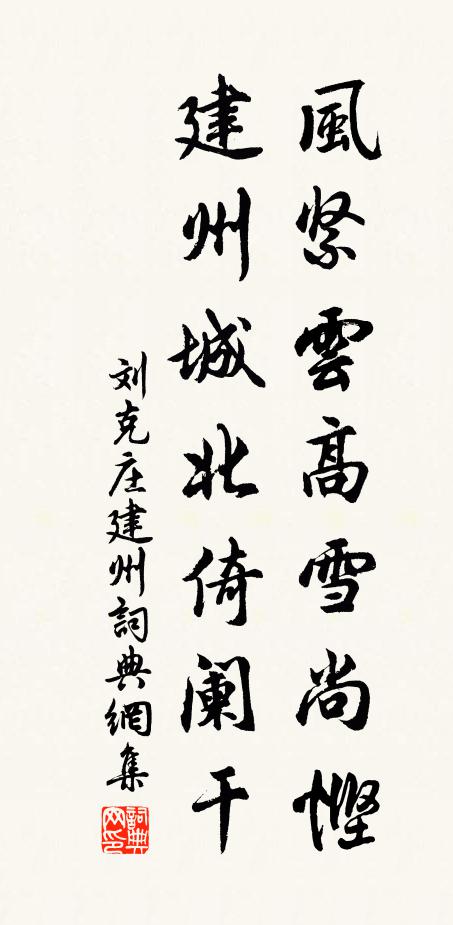 風緊雲高雪尚慳
建州城北倚阑干
刘克庄建州詞典網集
詞典網印